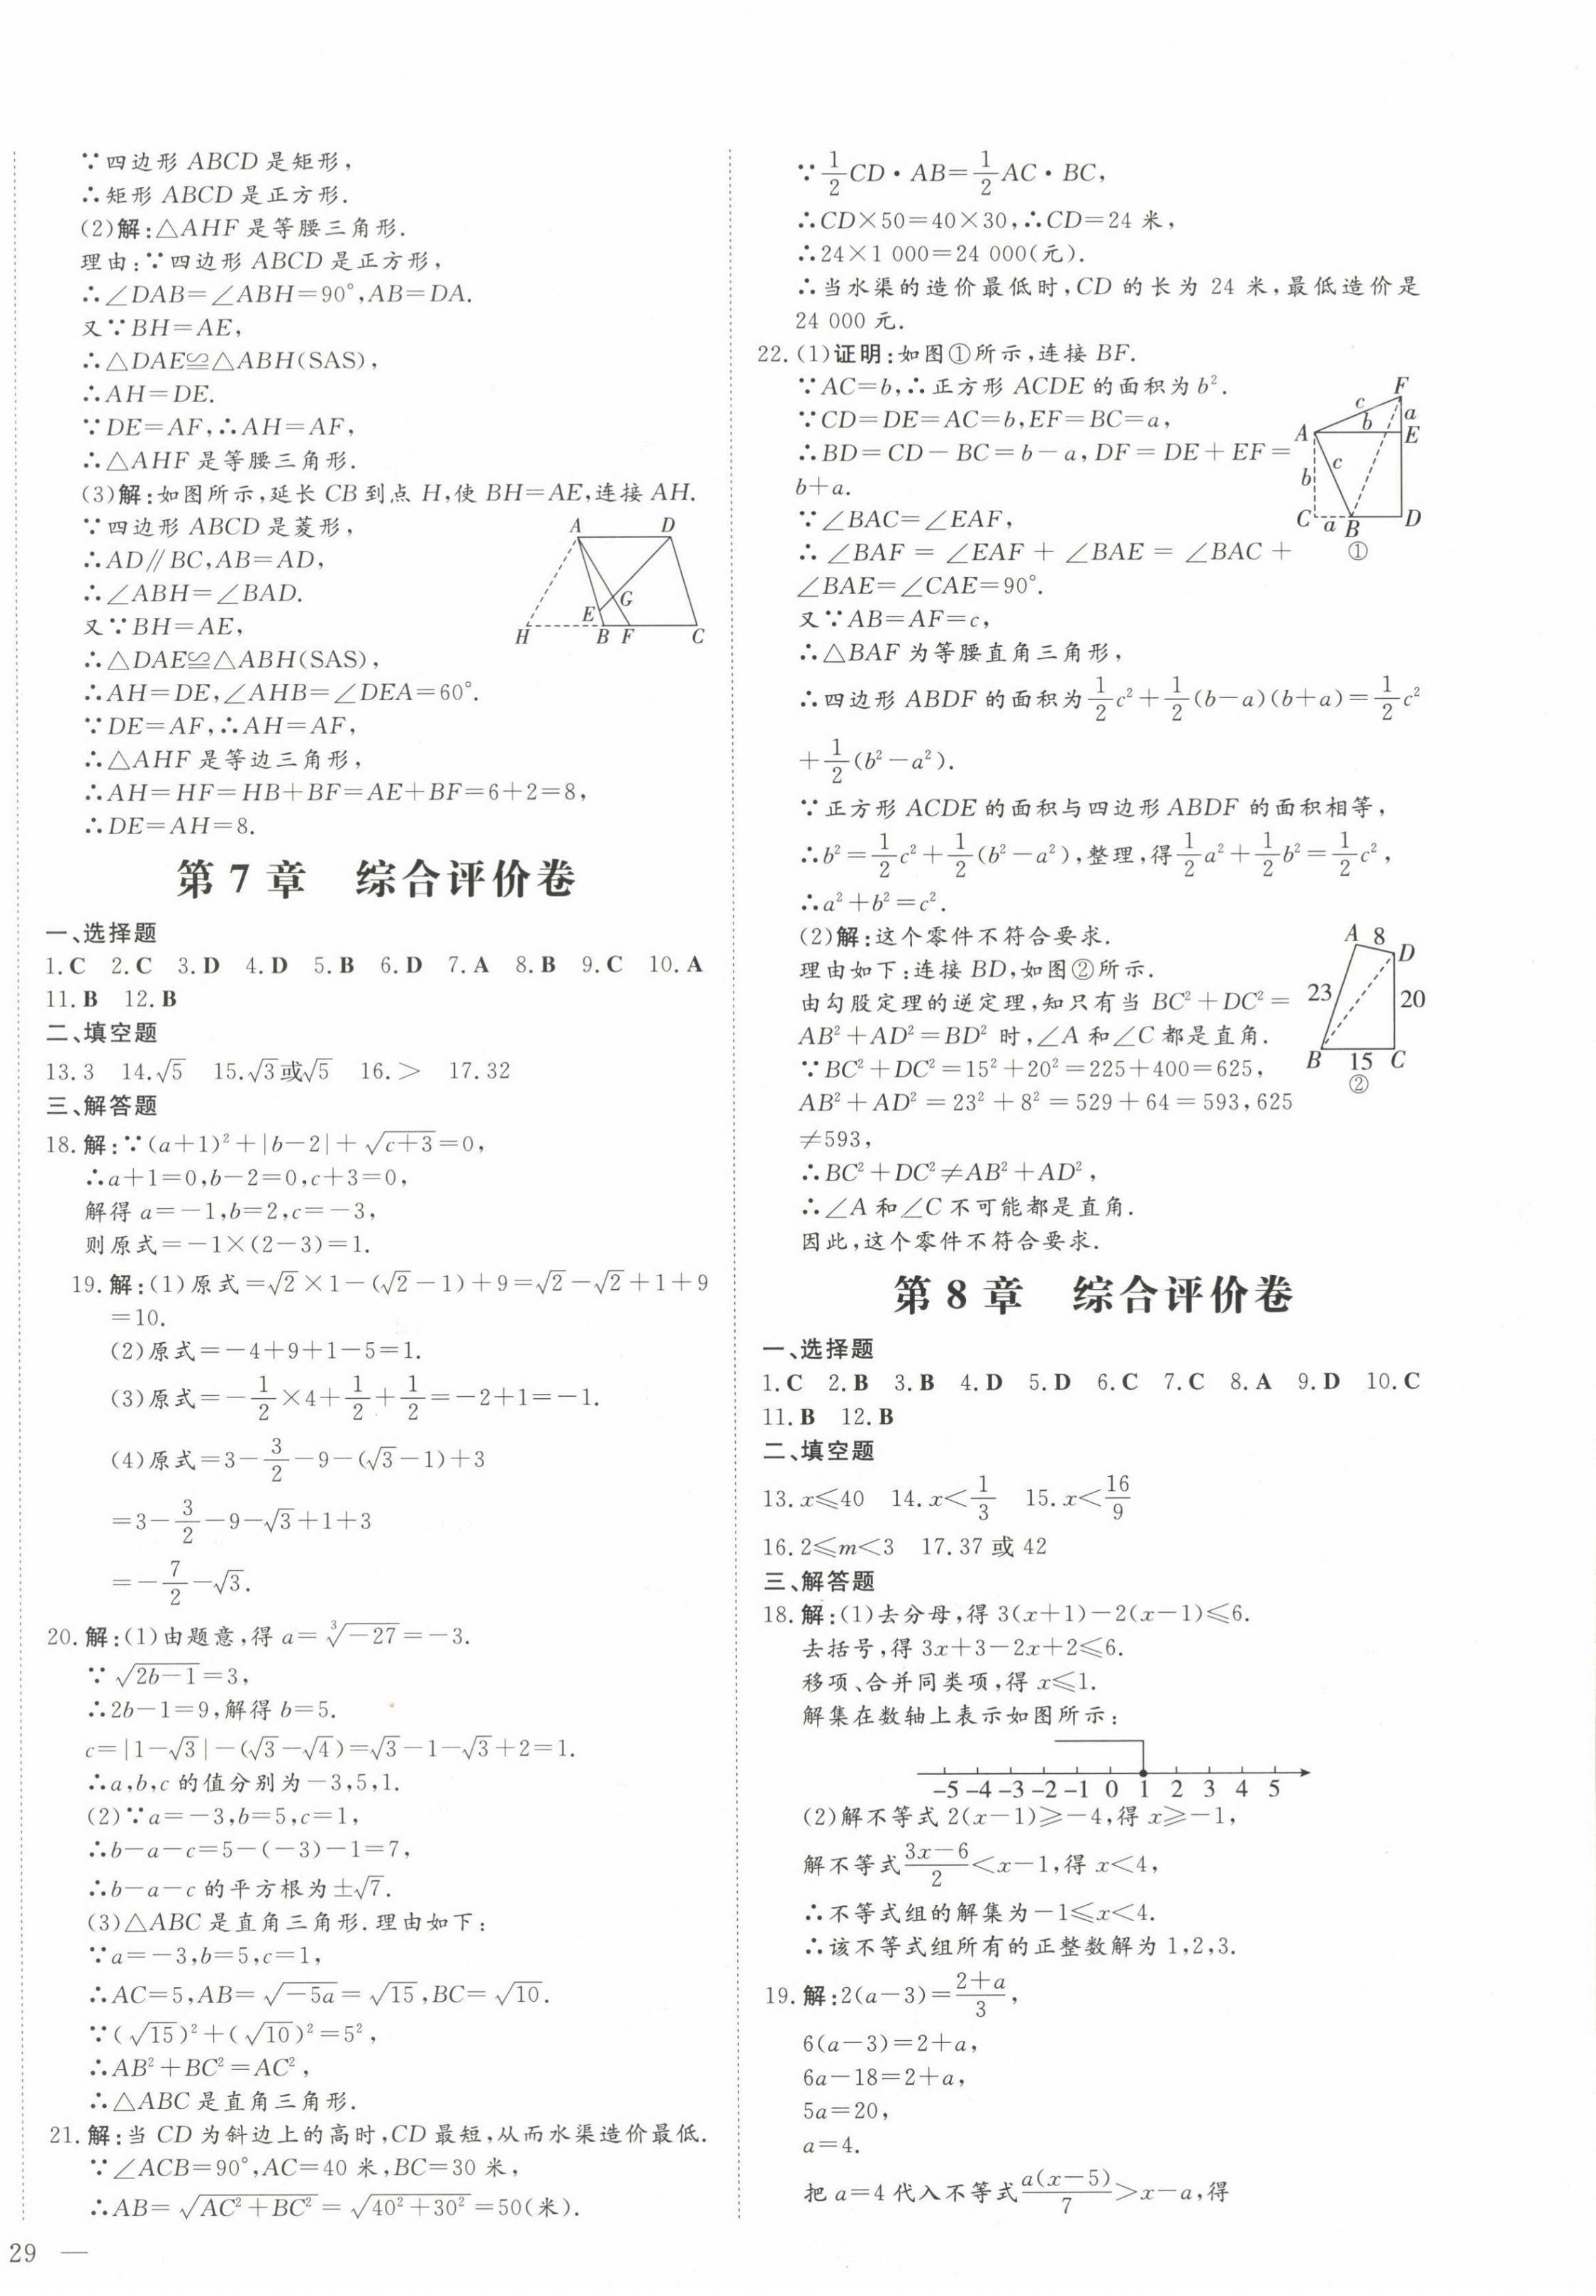 ∵四边形 ABCD 是矩形，
∴矩形 ABCD 是正方形.
(2)解:△AHF 是等腰三角形.
理由:∵四边形 ABCD 是正方形，
∴∠DAB=∠ABH=90°,AB=DA.
又∵BH=AE,
∴△DAE≌△ABH(SAS),
∴AH=DE.
∵DE=AF,∴AH=AF,
∴△AHF 是等腰三角形.
(3)解:如图所示,延长 CB 到点 H,使 BH=AE,连接 AH.
∵四边形 ABCD 是菱形，
∴AD∥BC,AB=AD,
∴∠ABH=∠BAD.
又∵BH=AE,
∴△DAE≌△ABH(SAS),
∴AH=DE,∠AHB=∠DEA=60°.
∵DE=AF,∴AH=AF,
∴△AHF 是等边三角形，
∴AH=HF=HB+BF=AE+BF=6+2=8,
∴DE=AH=8.
A D
E G
H B F C
第 7 章 综合评价卷
一、选择题
1.C 2.C 3.D 4.D 5.B 6.D 7.A 8.B 9.C 10.A
11.B 12.B
二、填空题
13.3 14.√5 15.√3或√5 16.> 17.32
三、解答题
18.解:∵(a+1)²+|b−2|+√(c+3)=0,
∴a+1=0,b−2=0,c+3=0,
解得 a=−1,b=2,c=−3,
则原式=−1×(2−3)=1.
19.解:(1)原式=√2×1−(√2−1)+9=√2−√2+1+9
=10.
(2)原式=−4+9+1−5=1.
(3)原式=−1/2×4+1/2+1/2=−2+1=−1.
(4)原式=3−3/2−9−(√3−1)+3
=3−3/2−9−√3+1+3
=−7/2−√3.
20.解:(1)由题意,得 a=∛−27=−3.
∵√(2b−1)=3,
∴2b−1=9,解得 b=5.
c=|1−√3|−(√3−√4)=√3−1−√3+2=1.
∴a,b,c 的值分别为−3,5,1.
(2)∵a=−3,b=5,c=1,
∴b−a−c=5−(−3)−1=7,
∴b−a−c 的平方根为±√7.
(3)△ABC 是直角三角形.理由如下:
∵a=−3,b=5,c=1,
∴AC=5,AB=√(−5a)=√15,BC=√10.
∵(√15)²+(√10)²=5²,
∴AB²+BC²=AC²,
∴△ABC 是直角三角形.
21.解:当 CD 为斜边上的高时,CD 最短,从而水渠造价最低.
∵∠ACB=90°,AC=40 米,BC=30 米，
∴AB=√(AC²+BC²)=√(40²+30²)=50(米).
29 —
∵1/2CD·AB=1/2AC·BC,
∴CD×50=40×30,∴CD=24 米，
∴24×1 000=24 000(元).
∴当水渠的造价最低时,CD 的长为 24 米,最低造价是
24 000 元.
22.(1)证明:如图①所示,连接 BF.
∵AC=b,∴正方形 ACDE 的面积为 b².
∵CD=DE=AC=b,EF=BC=a,
∴BD=CD−BC=b−a,DF=DE+EF=
b+a.
∵∠BAC=∠EAF,
∴∠BAF=∠EAF+∠BAE=∠BAC+
∠BAE=∠CAE=90°.
又∵AB=AF=c,
∴△BAF 为等腰直角三角形，
∴四边形 ABDF 的面积为1/2c²+1/2(b−a)(b+a)=1/2c²
+1/2(b²−a²).
∵正方形 ACDE 的面积与四边形 ABDF 的面积相等，
∴b²=1/2c²+1/2(b²−a²),整理,得1/2a²+1/2b²=1/2c²,
∴a²+b²=c².
F
c a
A b E
b c
C a B D
①
(2)解:这个零件不符合要求.
理由如下:连接 BD,如图②所示.
由勾股定理的逆定理,知只有当 BC²+DC²=
AB²+AD²=BD² 时,∠A 和∠C 都是直角.
∵BC²+DC²=15²+20²=225+400=625,
AB²+AD²=23²+8²=529+64=593,625
≠593,
∴BC²+DC²≠AB²+AD²,
∴∠A 和∠C 不可能都是直角.
因此,这个零件不符合要求.
A 8 D
23 20
B 15 C
②
第 8 章 综合评价卷
一、选择题
1.C 2.B 3.B 4.D 5.D 6.C 7.C 8.A 9.D 10.C
11.B 12.B
二、填空题
13.x≤40 14.x<1/3 15.x<16/9
16.2≤m<3 17.37 或 42
三、解答题
18.解:(1)去分母,得 3(x+1)−2(x−1)≤6.
去括号,得 3x+3−2x+2≤6.
移项、合并同类项,得 x≤1.
解集在数轴上表示如图所示:
−5 −4 −3 −2 −1 0 1 2 3 4 5
(2)解不等式 2(x−1)≥−4,得 x≥−1,
解不等式(3x−6)/2<x−1,得 x<4,
∴不等式组的解集为−1≤x<4.
∴该不等式组所有的正整数解为 1,2,3.
19.解:2(a−3)=(2+a)/3,
6(a−3)=2+a,
6a−18=2+a,
5a=20,
a=4.
把 a=4 代入不等式a(x−5)/7>x−a,得